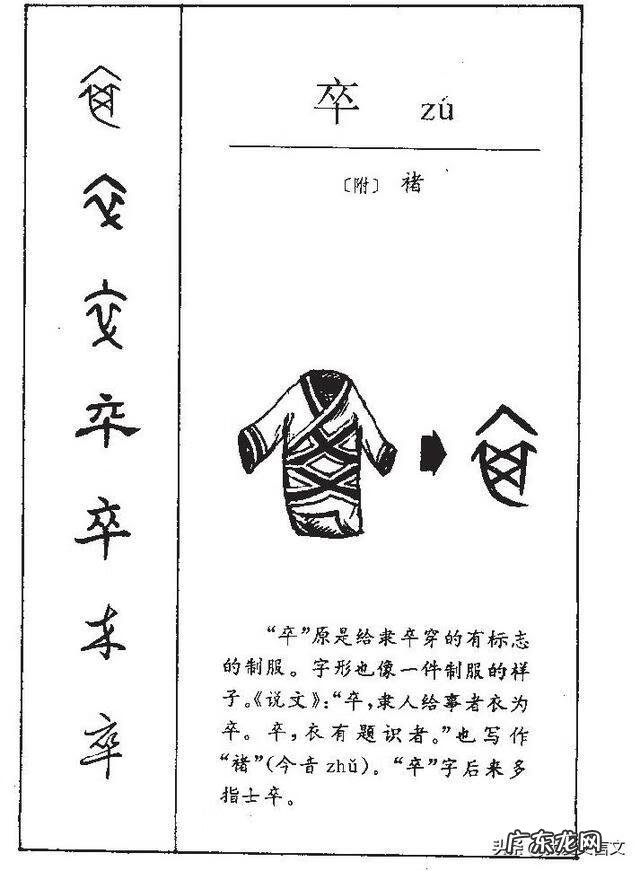 卒 zú
〔附〕 褚
“卒”原是给隶卒穿的有标志
的制服。字形也像一件制服的样
子。《说文》：“卒，隶人给事者衣为
卒。卒，衣有题识者。”也写作
“褚”(今音 zhǔ)。“卒”字后来多
指士卒。
卒
卒
卒
广东龙网